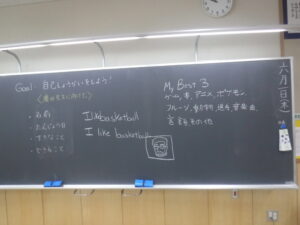 Goal 自己しょうかいをしよう!
・名前
・たんじょう日
・すきなこと
・できること
I like basketball
I like basketball.
My Best 3
ゲーム、本、アニメ、ポケモン
フルーツ、動物、選手、音楽、曲、
言語、その他
六月 日(木)